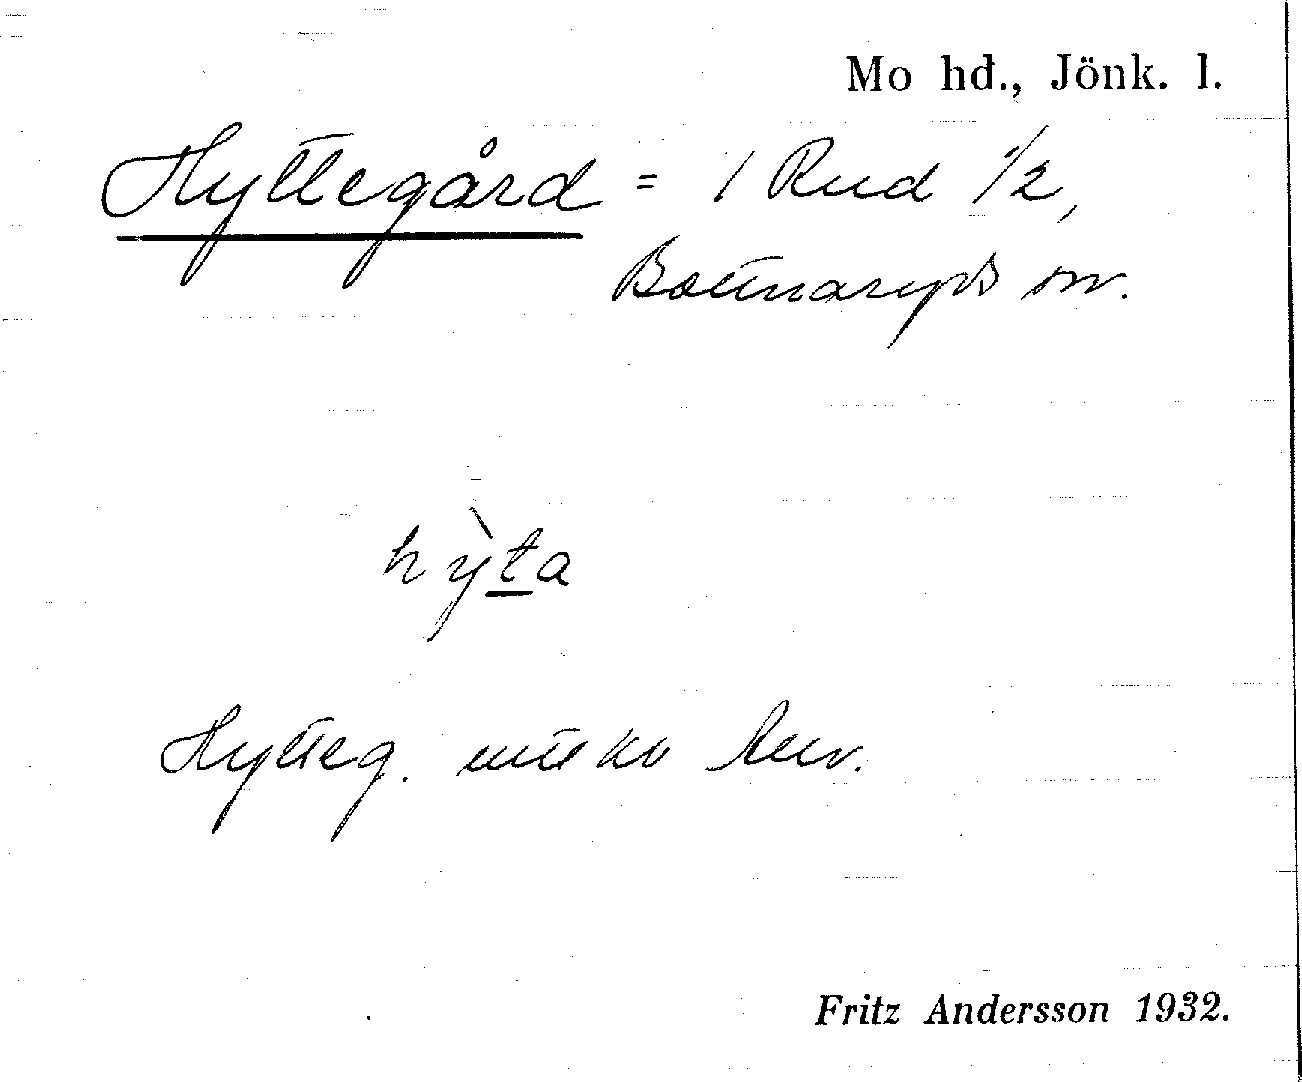 Mo hd., Jönk. l.
Hyttegård = 1 Rud 1/2,
Bottnaryds sn.
hỳta
Hytteg.
Fritz Andersson 1932.